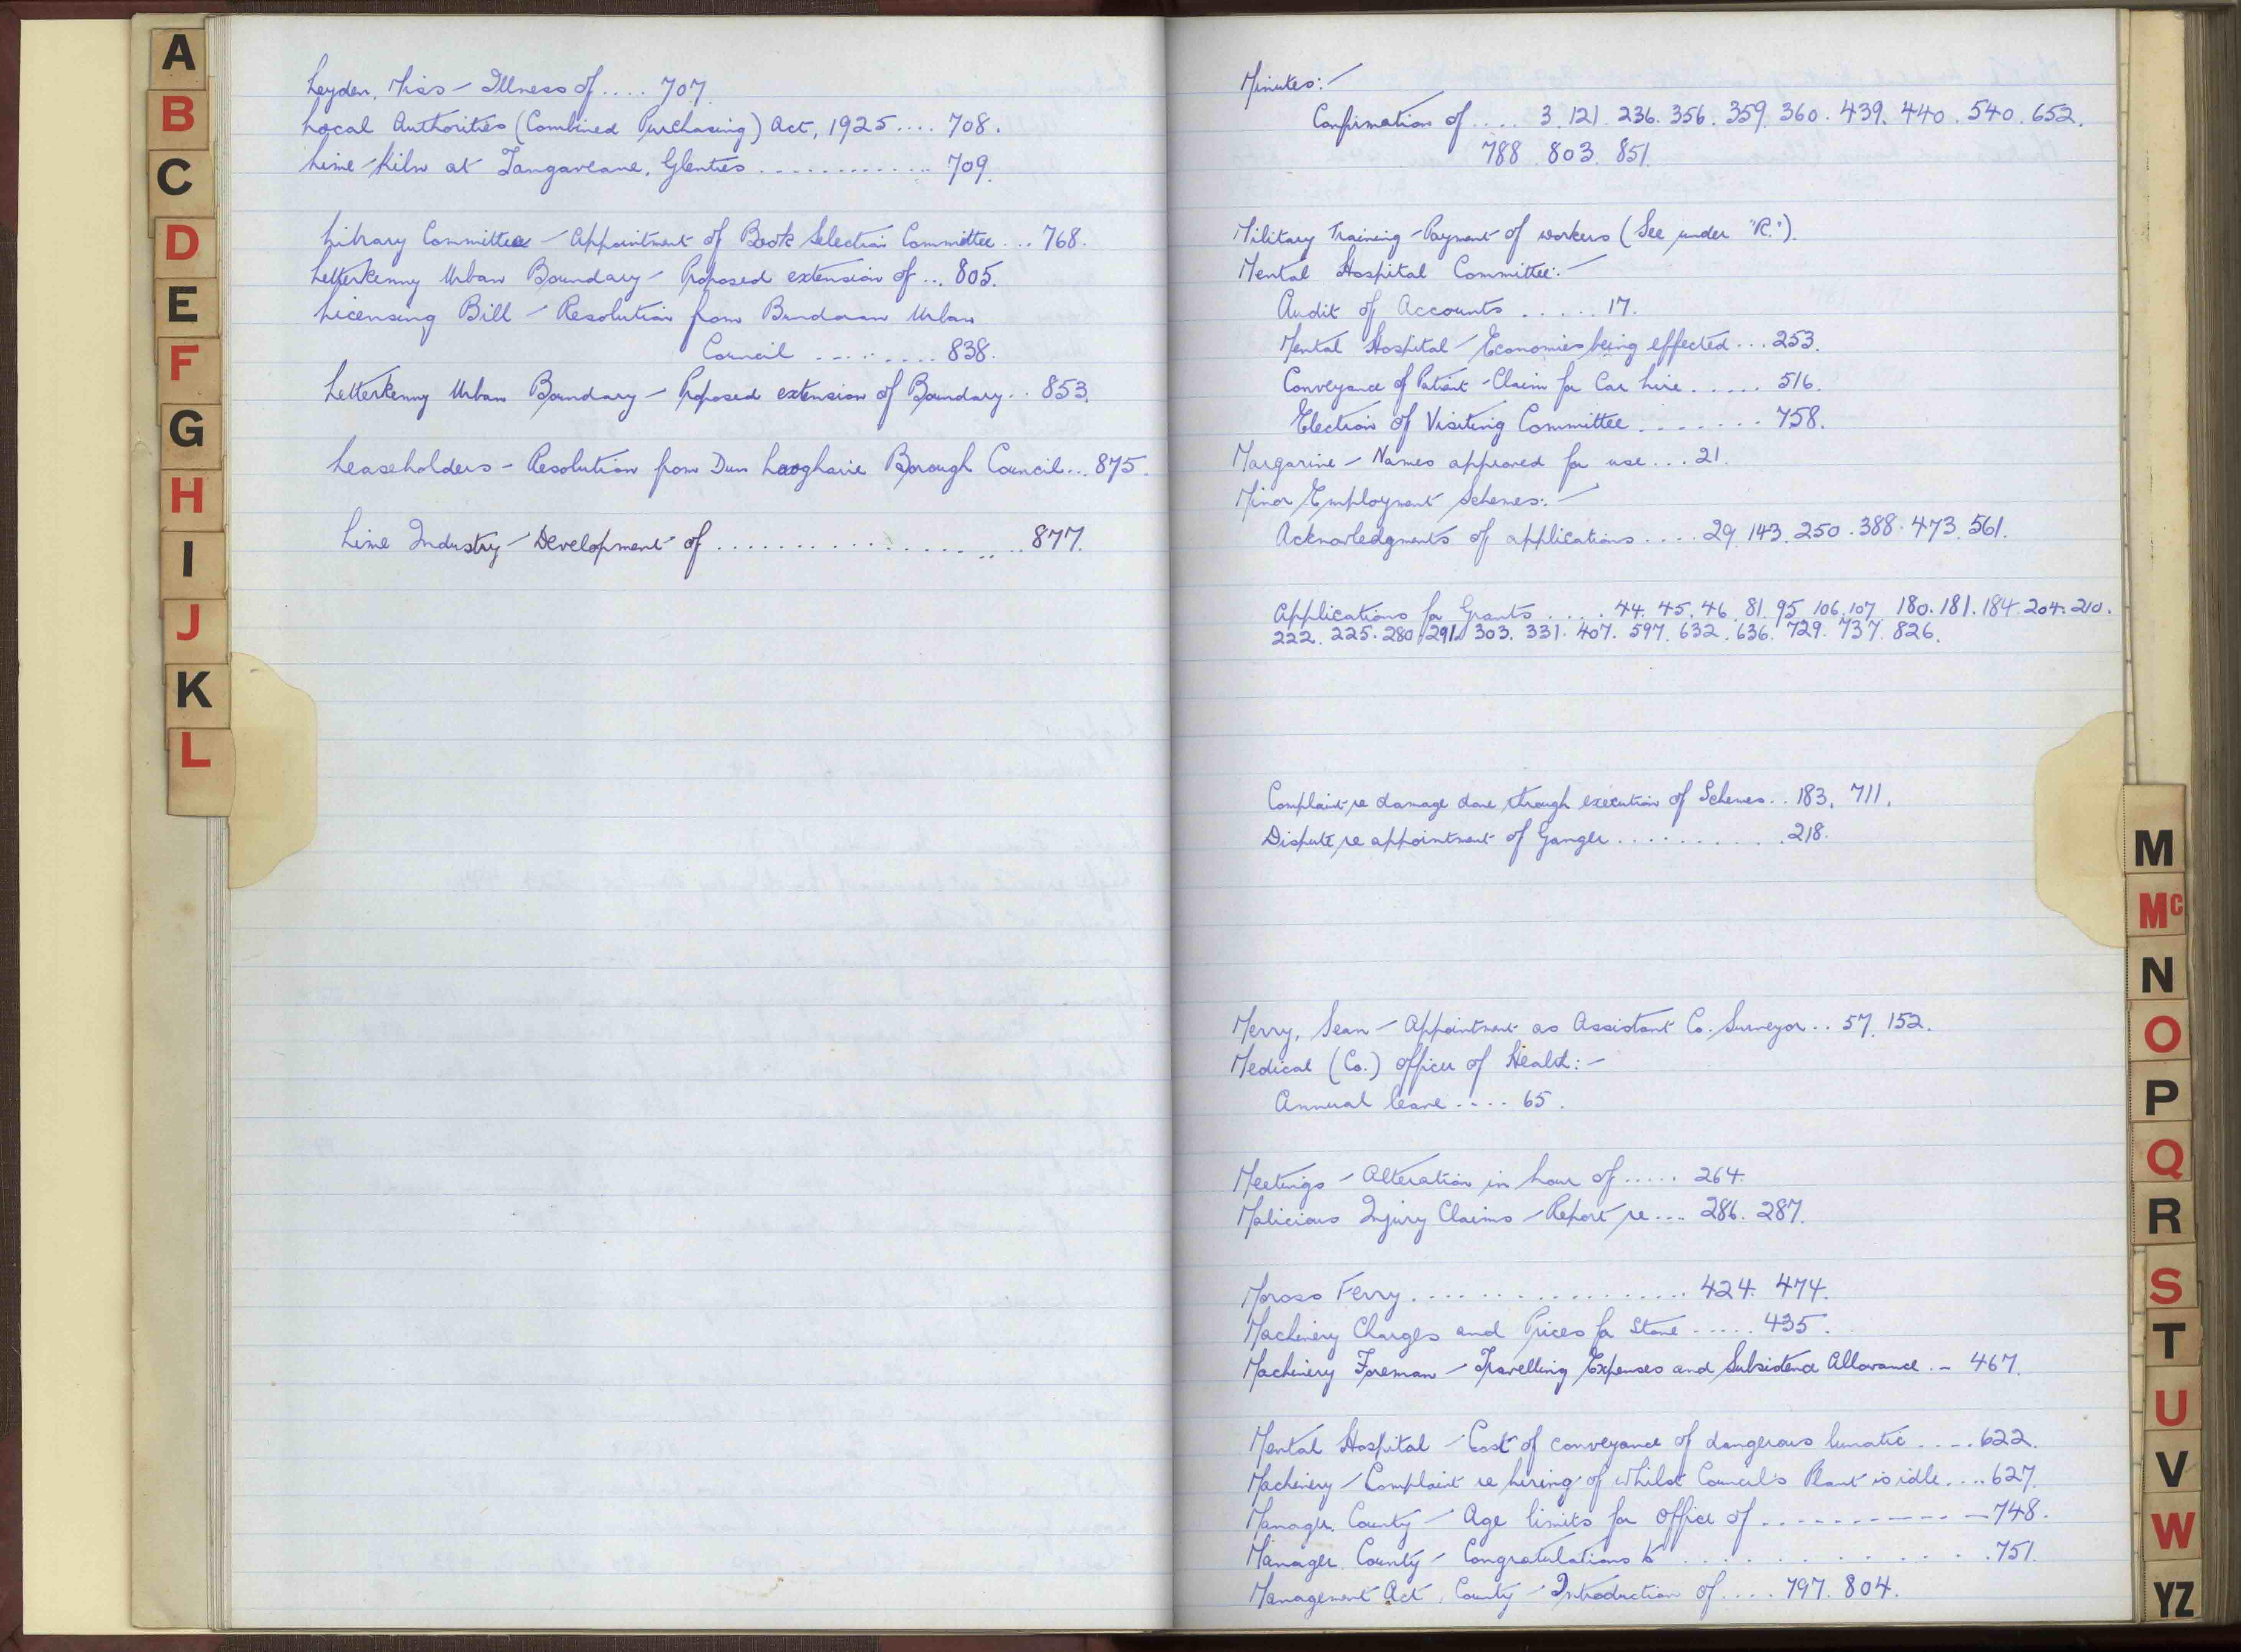 A
B
C
D
E
F
G
H
I
J
K
L
Leyden, Miss - Illness of .... 707.
Local Authorities (Combined Purchasing) Act, 1925 .... 708.
Lime-Kiln at Tangaveane, Glenties ............. 709.
Library Committee - Appointment of Book Selection Committee ... 768.
Letterkenny Urban Boundary - Proposed extension of ... 805.
Licensing Bill - Resolution from Bundoran Urban
Council ......... 838.
Letterkenny Urban Boundary - Proposed extension of Boundary .. 853.
Leaseholders - Resolution from Dun Laoghaire Borough Council ... 875.
Lime Industry - Development of ...................... 877.
Minutes:-
Confirmation of .... 3. 121. 236. 356. 359. 360. 439. 440. 540. 652.
788. 803. 851.
Military Training - Payment of workers (See under "R.").
Mental Hospital Committee:-
Audit of Accounts ..... 17.
Mental Hospital - Economies being effected ... 253.
Conveyance of Patient - Claim for Car hire ..... 516.
Election of Visiting Committee ....... 758.
Margarine - Names approved for use ... 21.
Minor Employment Schemes:-
Acknowledgments of applications .... 29. 143. 250. 388. 473. 561.
Applications for Grants .... 44. 45. 46. 81. 95. 106. 107. 180. 181. 184. 204. 210.
222. 225. 280. 291. 303. 331. 407. 597. 632. 636. 729. 737. 826.
Complaint re damage done through execution of Schemes .. 183. 711.
Dispute re appointment of Ganger ........... 218.
Merry, Sean - Appointment as Assistant Co. Surveyor .. 57. 152.
Medical (Co.) Officer of Health:-
Annual leave .... 65.
Meetings - Alteration in hour of ..... 264.
Malicious Injury Claims - Report re .... 286. 287.
Moross Ferry ................. 424. 474.
Machinery Charges and Prices for Stone ..... 435.
Machinery Foreman - Travelling Expenses and Subsistence Allowance .. 467.
Mental Hospital - Cost of conveyance of dangerous lunatic .... 622.
Machinery - Complaint re hiring of whilst Council's Plant is idle .... 627.
Manager, County - Age limits for office of ............ 748.
Manager, County - Congratulations to ........... 751.
Management Act, County - Introduction of .... 797. 804.
M
Mc
N
O
P
Q
R
S
T
U
V
W
YZ